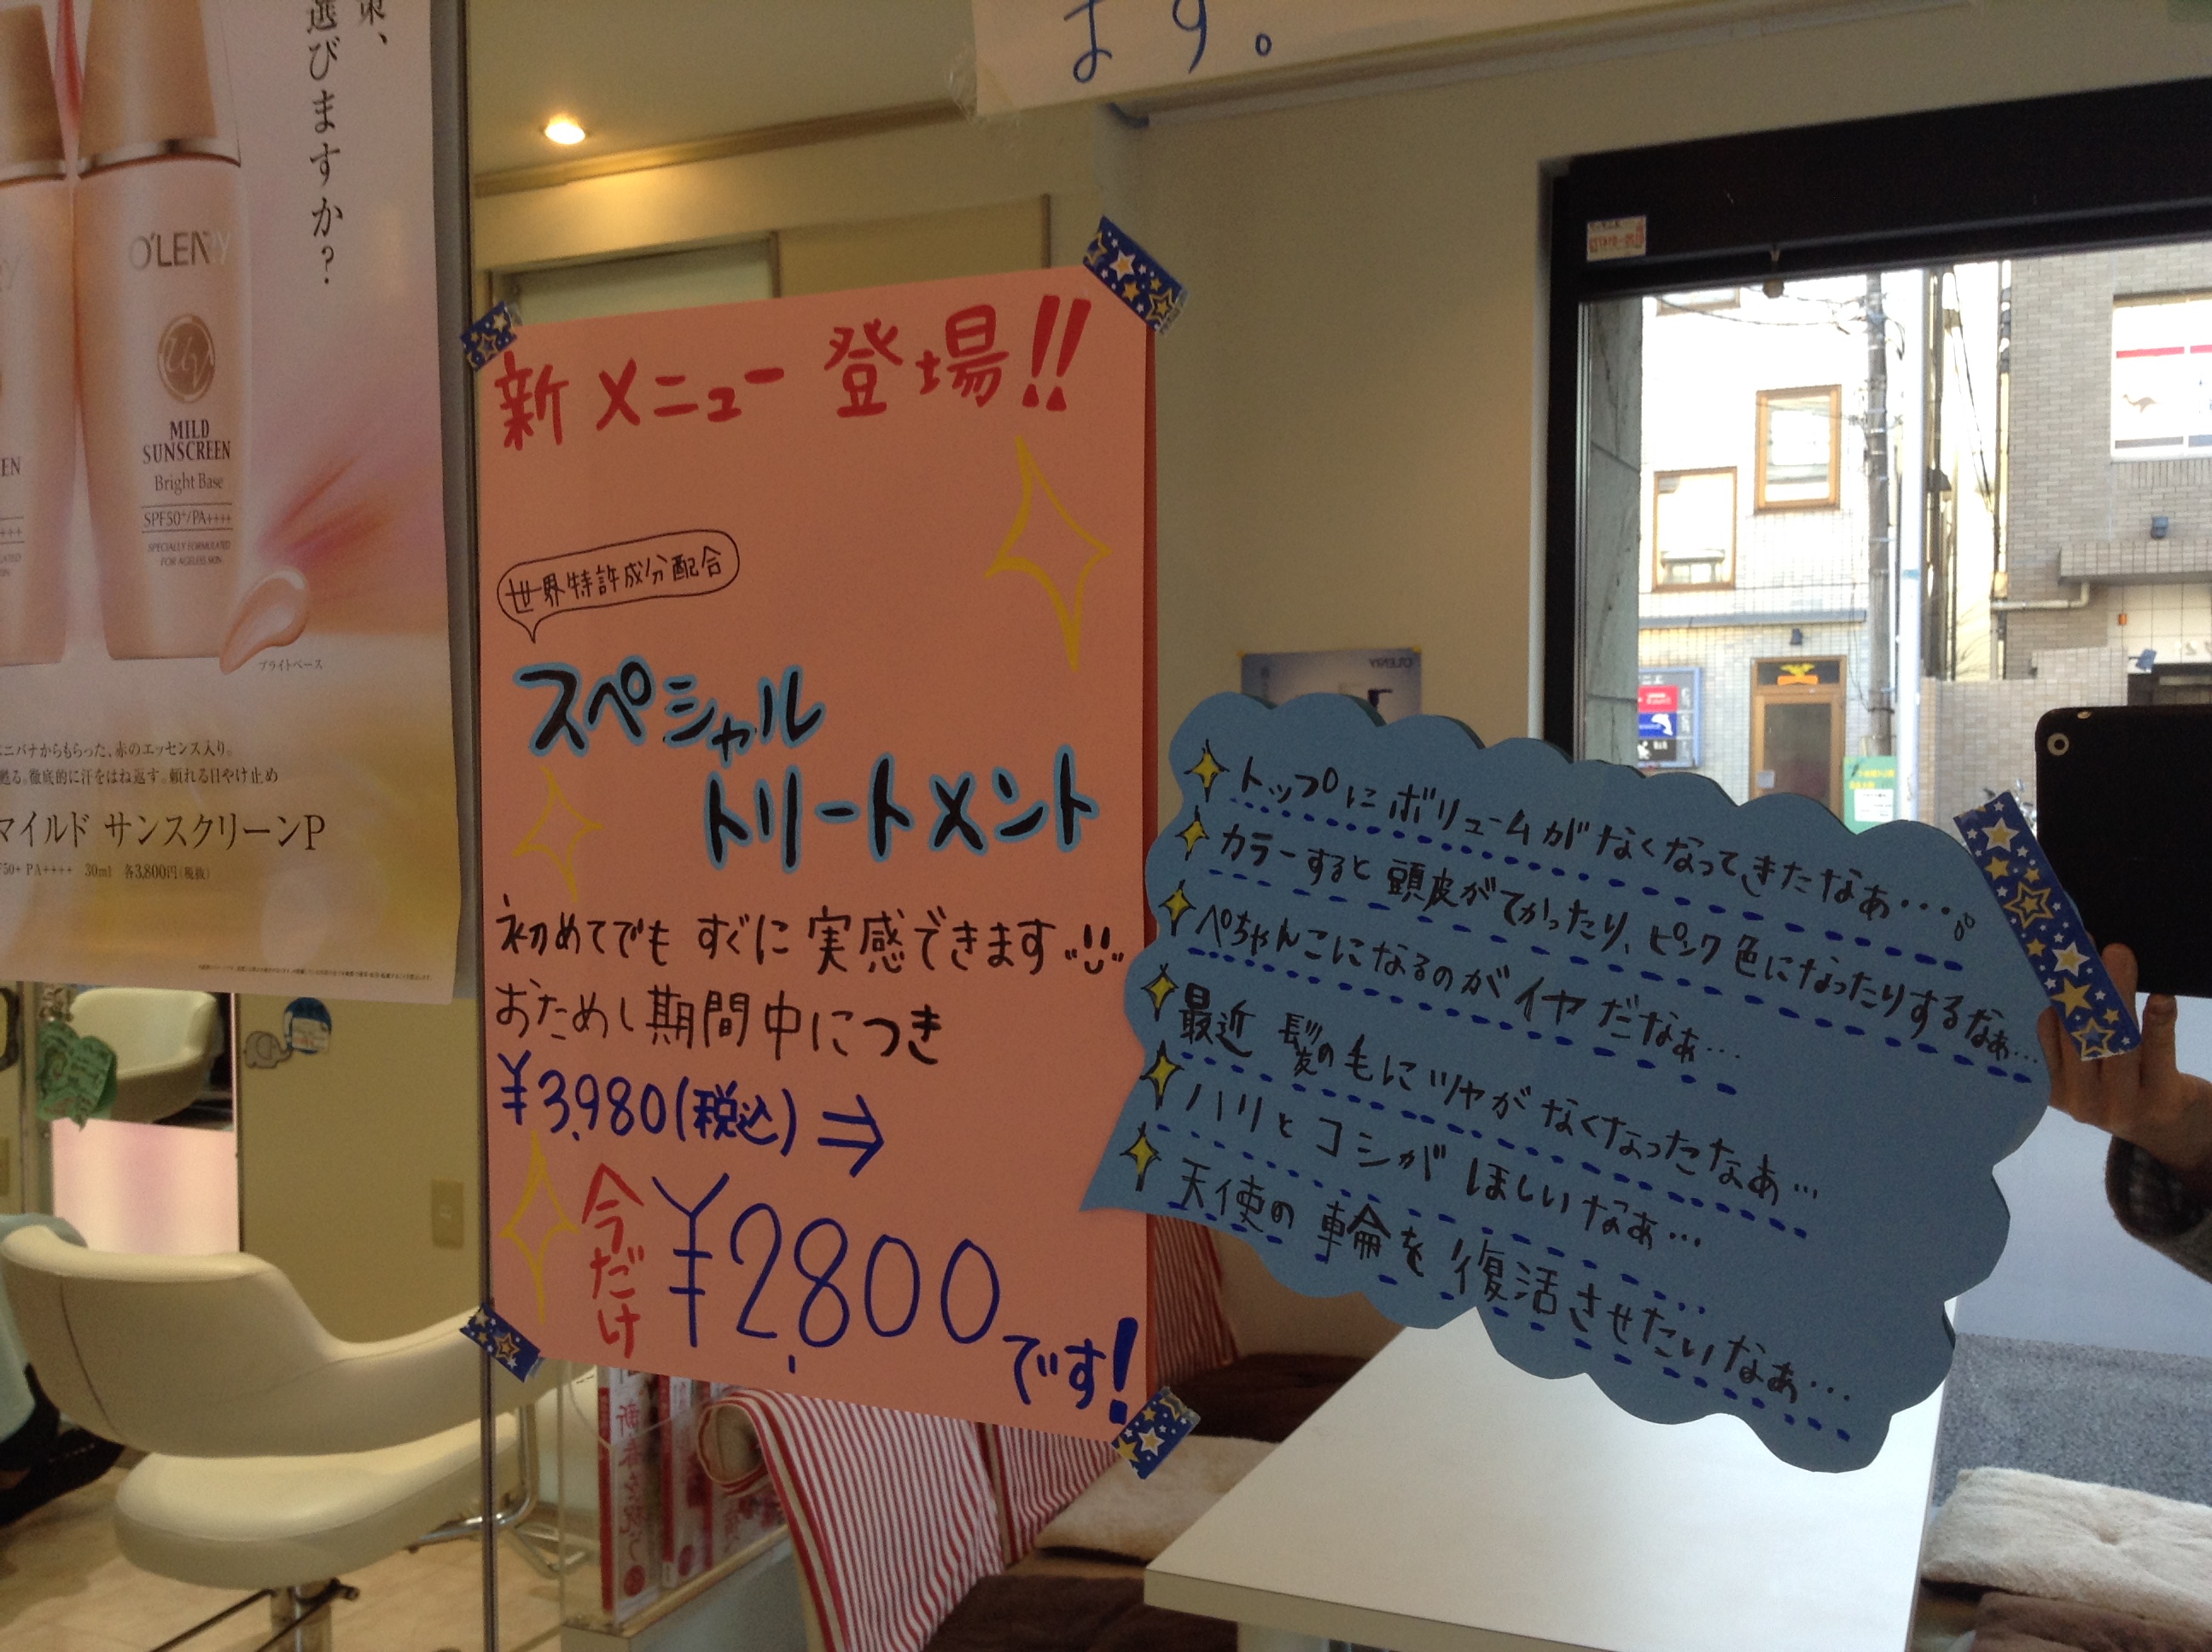 選びますか?
O'LENRY
UV
MILD
SUNSCREEN
Bright Base
SPF50+/PA++++
SPECIALLY FORMULATED
FOR AGELESS SKIN
ブライトベース
ニバナからもらった、赤のエッセンス入り。
甦る。徹底的に汗をはね返す。頼れる日やけ止め
マイルド サンスクリーンP
F50+ PA++++ 30ml 各3,800円(税抜)
ます。
新メニュー登場!!
世界特許成分配合
スペシャル
トリートメント
初めてでもすぐに実感できます
おためし期間中につき
¥3,980(税込)⇒
今だけ ¥2,800です!
トップにボリュームがなくなってきたなぁ…。
カラーすると頭皮がてかったり、ピンク色になったりするなぁ…
ぺちゃんこになるのがイヤだなぁ…
最近髪の毛にツヤがなくなったなぁ…
ハリとコシがほしいなぁ…
天使の輪を復活させたいなぁ…